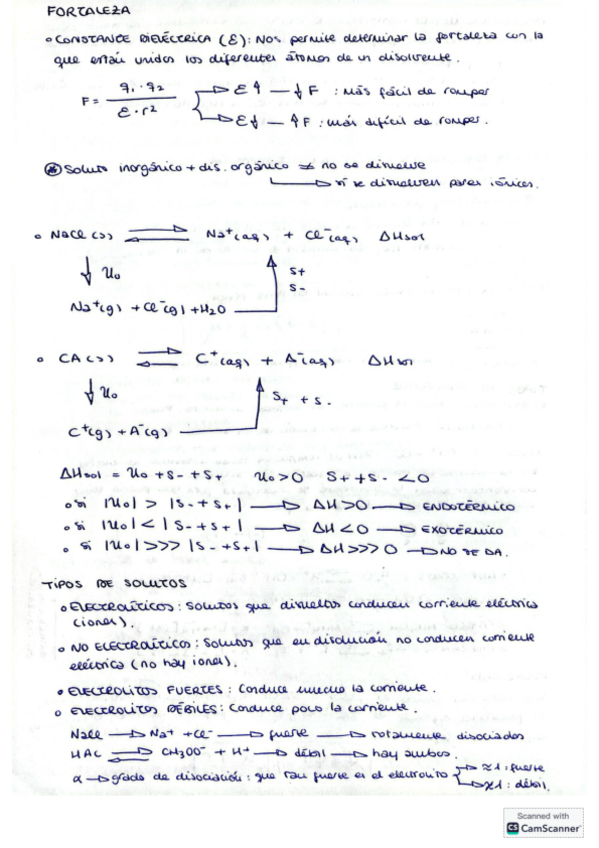 FORTALEZA
◦ CONSTANTE DIELÉCTRICA (ε): Nos permite determinar la fortaleza con la
que están unidos los diferentes átomos de un disolvente.
F = q₁ · q₂ / ε · r² → ε ↑ — ↓ F : Más fácil de romper
→ ε ↓ — ↑ F : más difícil de romper.
Soluto inorgánico + dis. orgánico ≠ no se disuelve
→ si se disuelven pares iónicos.
◦ NaCl (s) ⇌ Na⁺(aq) + Cl⁻(aq) ΔHsol
↓ U₀ S+
S-
Na⁺(g) + Cl⁻(g) + H₂O
◦ CA (s) ⇌ C⁺(aq) + A⁻(aq) ΔHsol
↓ U₀ S₊ + S-
C⁺(g) + A⁻(g)
ΔHsol = U₀ + S- + S+ U₀ > 0 S+ + S- < 0
◦ si |U₀| > |S- + S+| → ΔH > 0 → ENDOTÉRMICO
◦ si |U₀| < |S- + S+| → ΔH < 0 → EXOTÉRMICO
◦ Si |U₀| >>> |S- + S+| → ΔH >>> 0 → NO SE DA.
TIPOS DE SOLUTOS
◦ ELECTROLÍTICOS: Solutos que disueltos conducen corriente eléctrica
(iones).
◦ NO ELECTROLÍTICOS: Solutos que en disolución no conducen corriente
eléctrica (no hay iones).
• ELECTROLITOS FUERTES: Conduce mucho la corriente.
◦ ELECTROLITOS DÉBILES: Conduce poco la corriente.
NaCl → Na⁺ + Cl⁻ → fuerte → totalmente disociados
HAc ⇌ CH₃OO⁻ + H⁺ → débil → hay ambos.
α → grado de disociación: que tan fuerte es el electrolito → ≈ 1 : fuerte
→ ≉ 1 : débil.
Scanned with
CS CamScanner